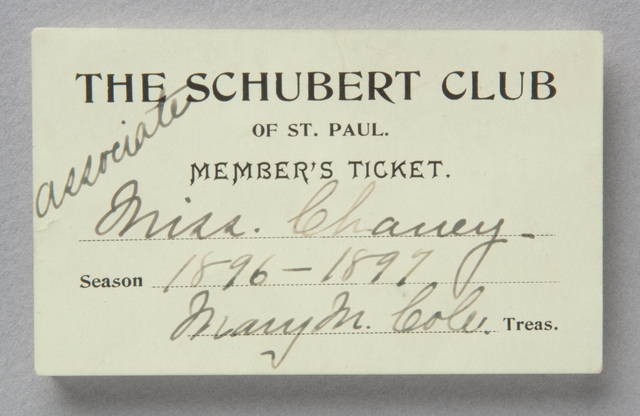 THE SCHUBERT CLUB
OF ST. PAUL.
associate
MEMBER'S TICKET.
Miss. Chaney -
Season 1896-1897
Mary M. Cole. Treas.